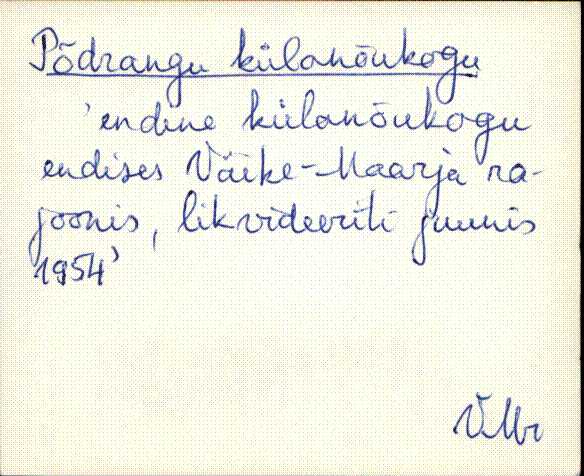 Põdrangu külanõukogu
'endine külanõukogu
endises Väike-Maarja ra-
joonis, likvideeriti juunis
1954'
VMr